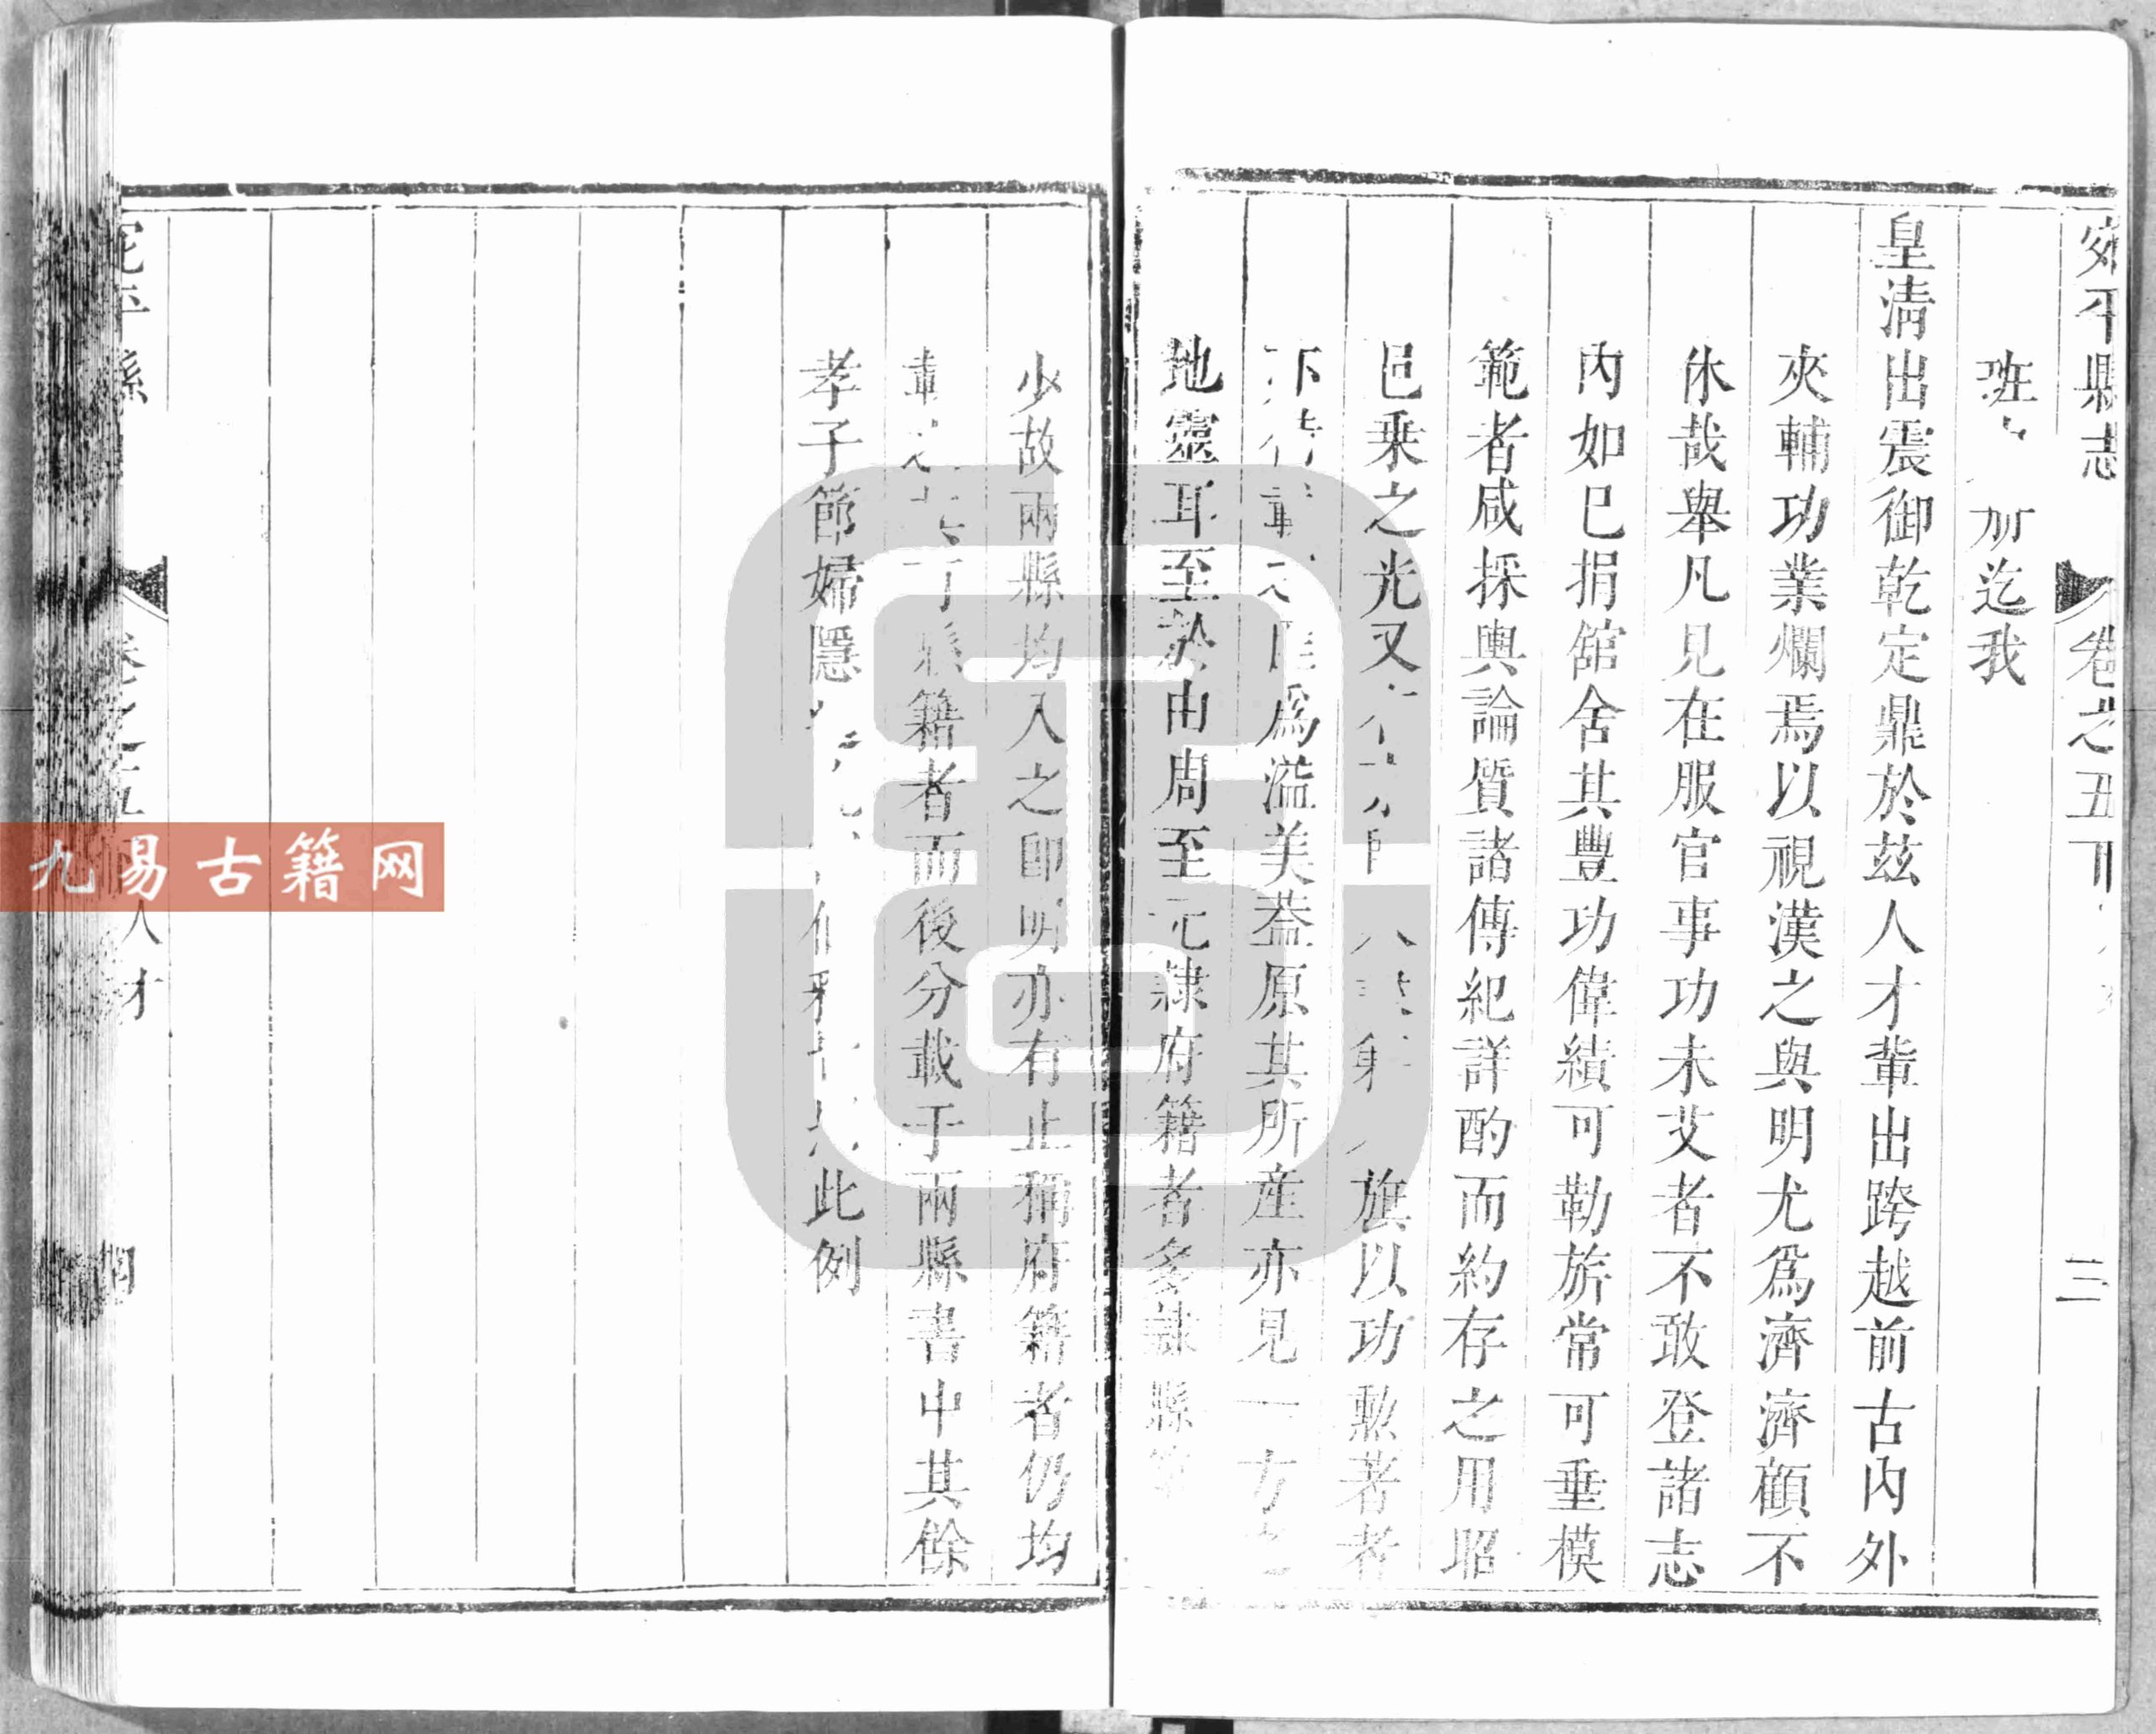 宛平縣志 卷之五下 三
班 迄我
皇清出震御乾定鼎於茲人才輩出跨越前古內外
夾輔功業爛焉以視漢之與明尤爲濟濟顧不
休哉舉凡見在服官事功未艾者不敢登諸志
內如已捐館舍其豐功偉績可勒旂常可垂模
範者咸採輿論質諸傳紀詳酌而約存之用昭
邑乘之光又 旗以功勲著者
亦 爲溢美蓋原其所産亦見一方
地靈耳至於由周至元隸府籍者多隸縣籍
少故兩縣均入之卽明亦有止稱府籍者仍均
縣籍者而後分載于兩縣書中其餘
孝子節婦隱 此例
人才
九易古籍网